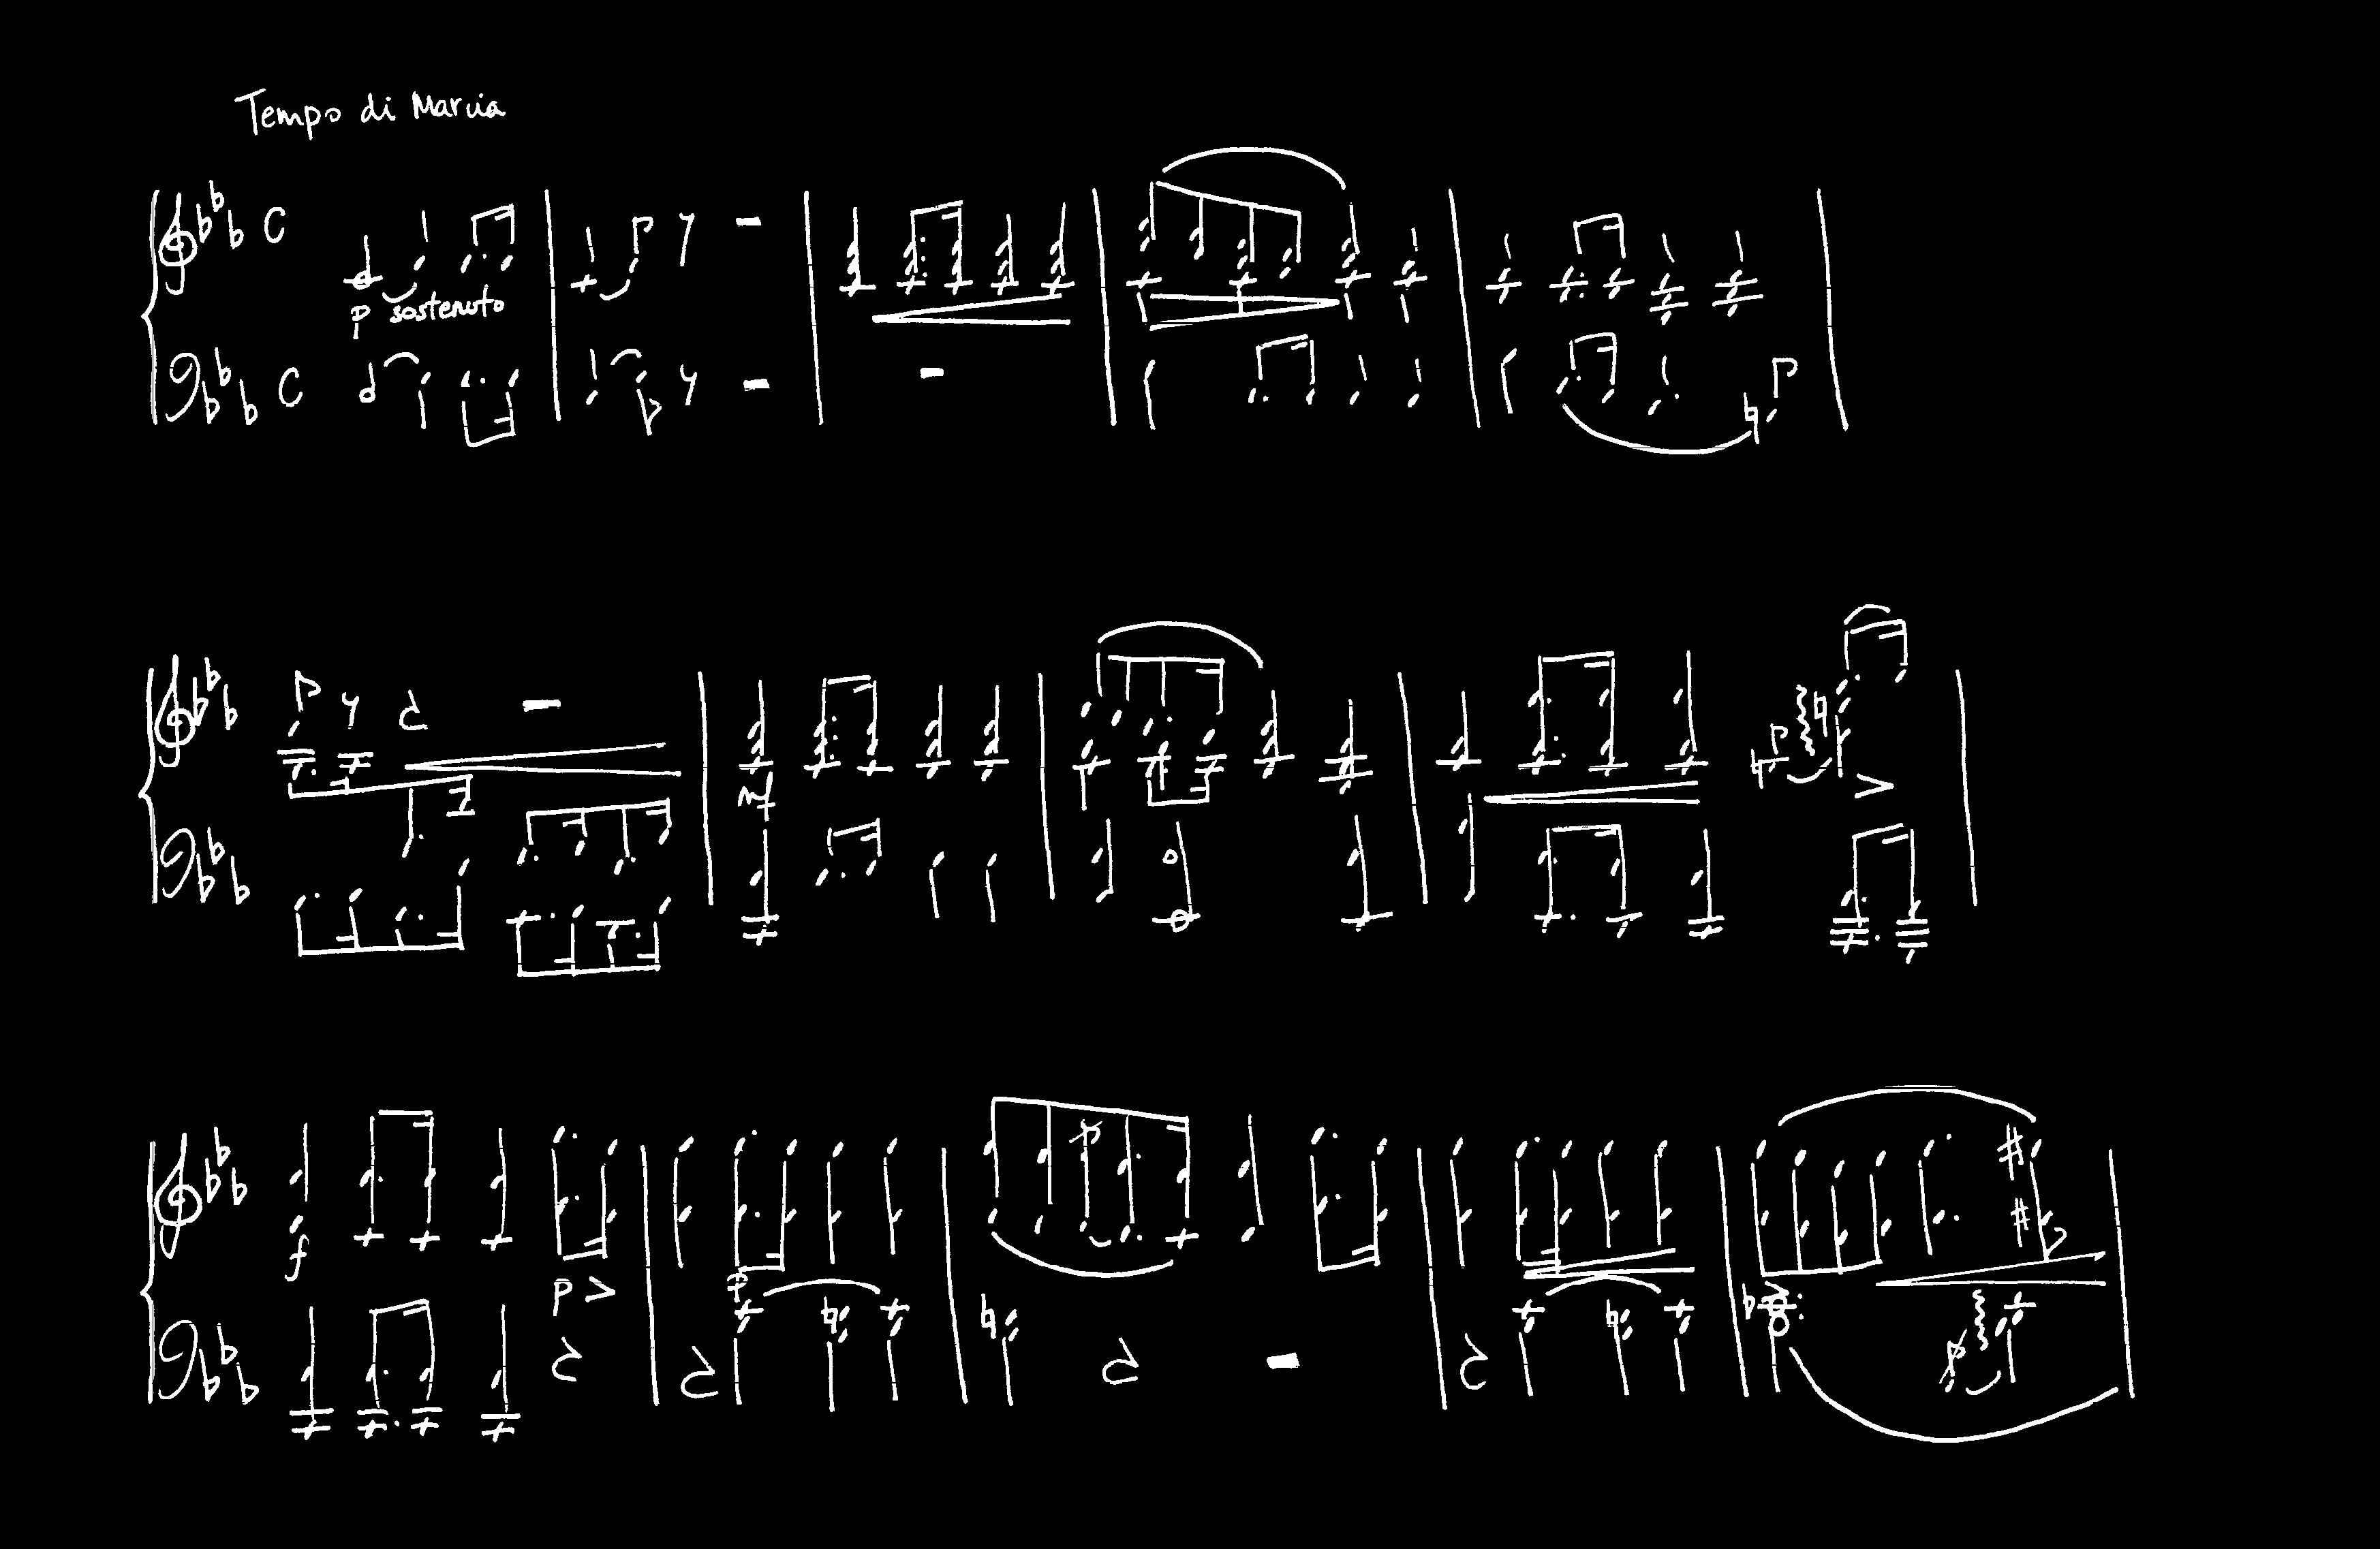 Tempo di Marcia
C
p sostenuto
C
mf
f
p
p